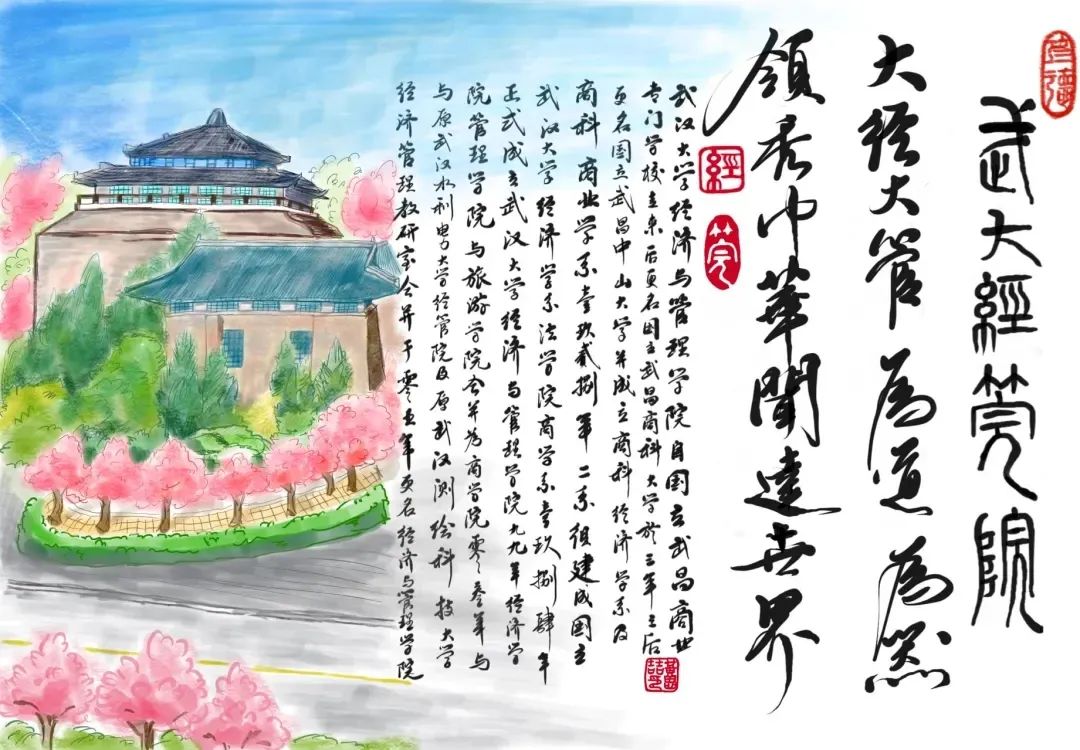 武大經筦院
大经大管為道為器
領秀中華聞達世界
經筦
武汉大学经济与管理学院自国立武昌商业
专门学校立来后更名国立武昌商科大学於三年之后
更名国立武昌中山大学并成立商科经济学系及
商科商业学系壹玖貳捌年二系组建成国立
武汉大学经济学系法学院商学系壹玖捌肆年
正式成立武汉大学经济与管理学院九九年经济学
院管理学院与旅游学院合并为商学院零叁年与
与原武汉水利电大学经管院及原武汉测绘科技大学
经济管理教研室合并于零五年更名经济与管理学院